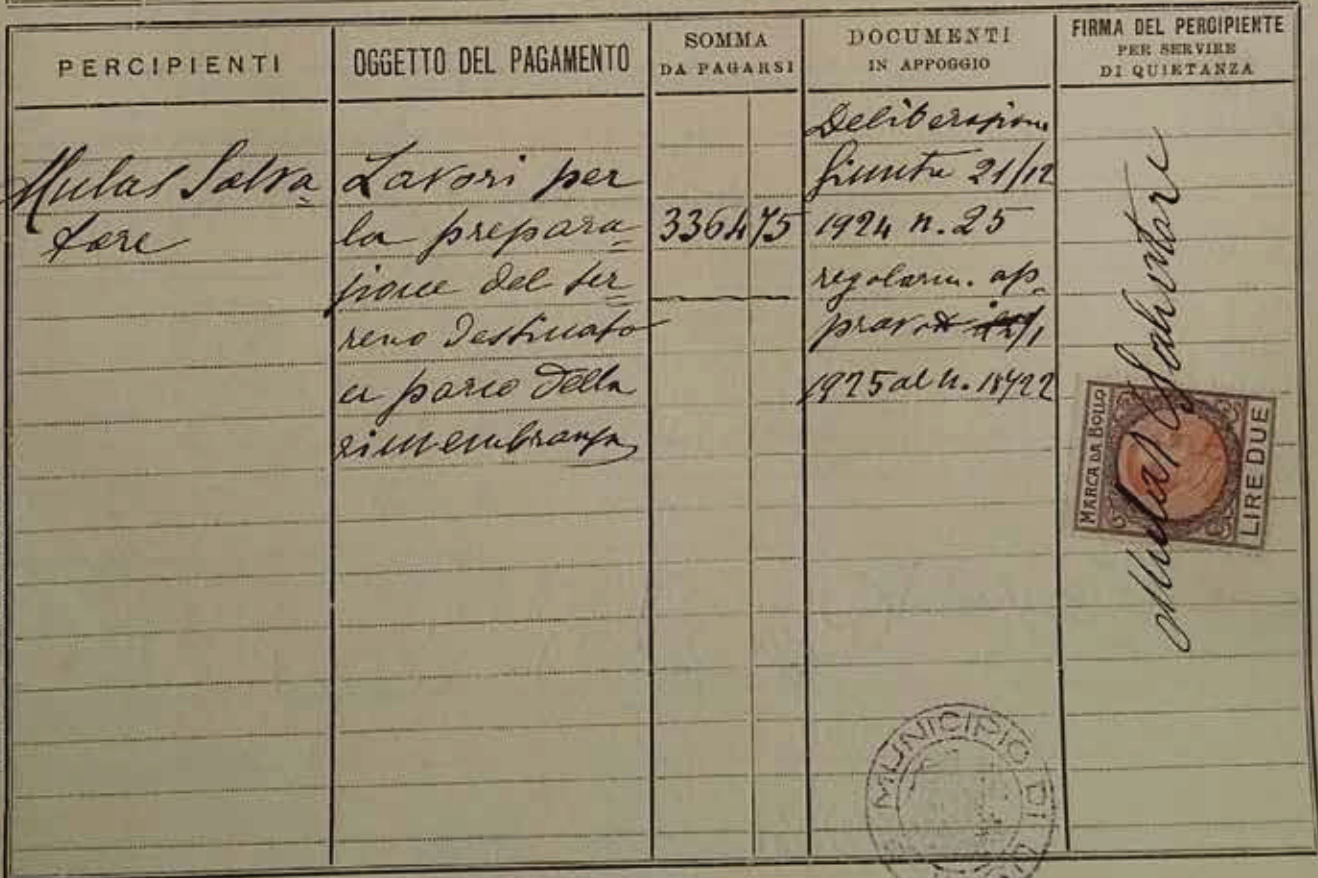 PERCIPIENTI
OGGETTO DEL PAGAMENTO
SOMMA
DA PAGARSI
DOCUMENTI
IN APPOGGIO
FIRMA DEL PERCIPIENTE
PER SERVIRE
DI QUIETANZA
Mulas Salva=
tore
Lavori per
la prepara=
zione del ter=
reno destinato
a parco della
rimembranza
3364 75
Deliberazione
Giunta 21/12
1924 n. 25
regolarm. ap=
1925 al n.
Mulas Salvatore
MARCA DA BOLLO
LIRE DUE
MUNICIPIO DI